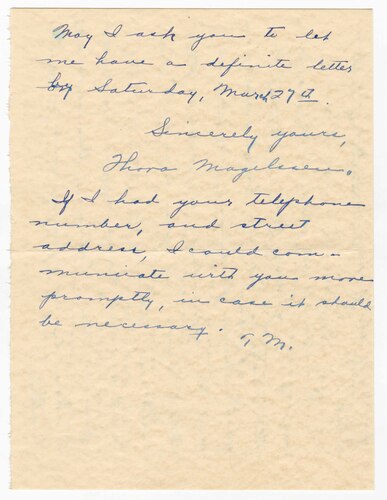 May I ask you to let
me have a definite letter
by Saturday, March 27th.
Sincerely yours,
Thora Magelssen.
If I had your telephone
number, and street
address, I could com-
municate with you more
promptly, in case it should
be necessary. T.M.